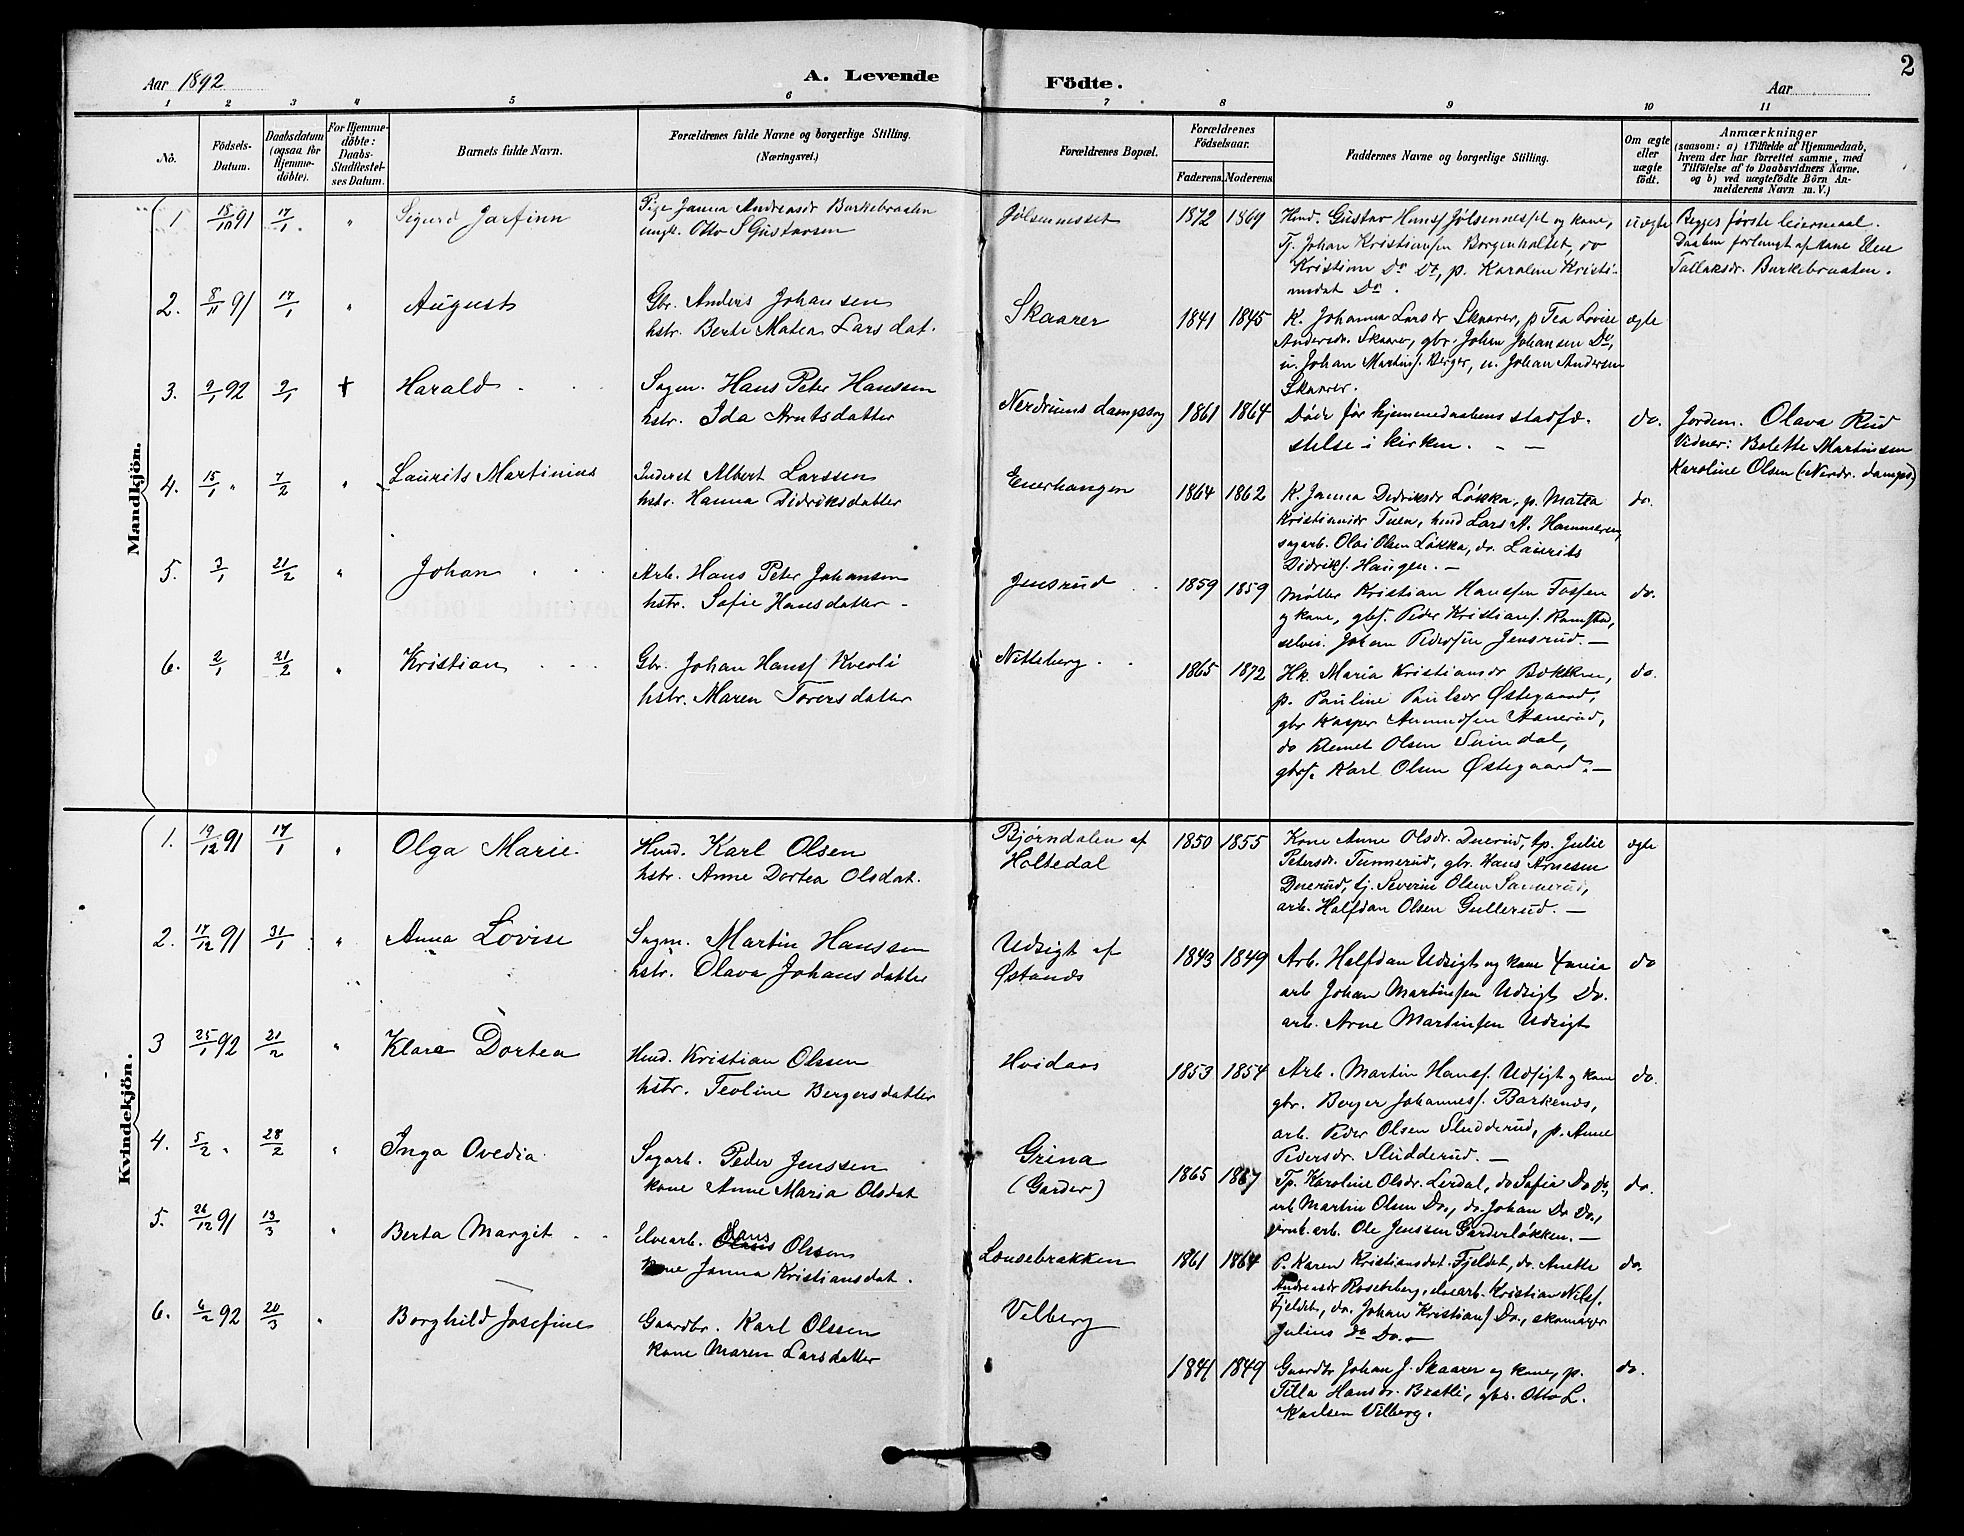 2
Aar 1892
A. Levende Födte.
Aar
1 2 3 4 5 6 7 8 9 10 11
Nô. Födsels-Datum. Daabsdatum (ogsaa for Hjemme-döbte). For Hjemme-döbte: Daabs-Stadfæstel-ses Datum. Barnets fulde Navn. Forældrenes fulde Navne og borgerlige Stilling. (Næringsvei.) Forældrenes Bopæl. Forældrenes Födselsaar. Faderens. Moderens. Faddernes Navne og borgerlige Stilling. Om ægte eller uægte födt. Anmærkninger (saasom: a) i Tilfælde af Hjemmedaab, hvem der har forrettet samme, med Tilföielse af to Daabsvidners Navne, og b) ved uægtefödte Börn An-melderens Navn m.V.)
Mandkjön.
1 15/10 91 17/1 " Sigurd Jarfinn
Pige Janna Andreasdr Burkebraaten
ungk. Otto S Gustavsen
Jølsennesset 1872 1869
Husd. Gustav Hanss Jølsennesset og kone,
Tj. Johan Kristiansen Borgenholtet, do
Kristian Do Do, p. Karoline Kristi-
ansdat Do.
uægte
Begges første leiermaal.
Daaben forlangt af kone Elen
Tollaksdr. Burkebraaten.
2. 8/11 91 17/1 " August
Gbr. Anders Johansen
hstr. Berte Matea Larsdat.
Skaarer 1841 1845
K. Johanna Larsdr Skaarer, p Tea Lovise
Andersdr. Skaarer, gbr. Johan Johansen Do,
u. Johan Martins. Berger, u. Johan Andersen
Skaarer.
ægte
3. 2/1 92 2/1 + Harald
Sagm. Hans Peter Hanssen
hstr. Ida Arntsdatter
Nerdrums dampsag 1861 1864
Døde før hjemmedaabens stadfæ-
stelse i kirken. — —
do.
Jordem. Olava Rud
Vidner: Bolette Martinsen
Karoline Olsen (Nerdr. damps)
4. 15/1 " 7/2 " Laurits Martinius
Inderst Albert Larssen
hstr. Hanna Didriksdatter
Enerhaugen 1864 1862
K. Janna Didriksdr Løkka, p. Matea
Kristiansdr Tuen, husd Lars A. Hammeren,
sagarb. Olai Olsen Løkka, do. Laurits
Didriks. Haugen. —
do.
5. 3/1 21/2 " Johan
Arb. Hans Peter Johansen
hstr. Sofie Hansdatter -
Jensrud 1859 1859
Møller Kristian Hanssen Fossen
og kone, gbs. Peder Kristians. Ramstad,
selvei. Johan Pedersen Jensrud. —
do.
6. 2/1 21/2 " Kristian
Gbr. Johan Hanss Kverli
hstr. Maren Torersdatter
Nitteberg. 1865 1872
Hk. Maria Kristiansdr Bakken,
p. Pauline Paulsdr Østegaard,
gbr Kasper Amundsen Aanerud,
do Klemet Olsen Svindal,
gbrs. Karl Olsen Østegaard. —
do.
Kvindekjön.
1. 19/12 91 17/1 " Olga Marie
Husd. Karl Olsen
hstr. Anne Dortea Olsdat.
Bjørndalen af
Holtedal
1850 1855
Kone Anne Olsdr. Duerud, tp. Julie
Petersdr. Tunnerud, gbr. Hans Arnesen
Duerud, tj. Severin Olsen Sannerud,
arb. Halfdan Olsen Gullerud. —
ægte
2. 17/12 91 31/1 " Anna Lovise
Sagm. Martin Hanssen
hstr. Olava Johansdatter
Udsigt af
Østands
1843 1849
Arb. Halfdan Udsigt og kone
arb Johan Martinssen Udsigt Do.
arb. Arne Martinssen Udsigt
do
3 25/1 92 21/2 " Klara Dortea
Husd. Kristian Olssen
hstr. Teoline Bergersdatter
Hvidaas 1853 1854
Arb. Martin Hanss. Udsigt og kone
gbr. Berger Johanness. Barkenæs,
arb. Peder Olsen Sludderud, p. Anne
Pedersdr. Sludderud. —
do.
4. 5/2 " 28/2 " Inga Ovedia
Sagarb. Peder Jenssen
kone Anne Maria Olsdat
Grina
(Garder)
1865 1867
Tp. Karoline Olsdr. Lierdal, do Sofia Do Do,
arb Martin Olsen Do., do. Johan Do Do.,
jernb.arb. Ole Jenssen Garderløkken. —
do.
5. 26/12 91 13/3 " Berta Margit
Elvearb. Hans Olssen
kone Janna Kristiansdat.
Lousebrakken 1861 1864
P. Karen Kristiansdat. Fjeldet, do. Anette
Andersdr Roseberg, elvearb. Kristian Nilss.
Fjeldet, do. Johan Kristians Do., skomager
Julius Do Do. —
do.
6. 6/2 92 20/3 " Borghild Josefine
Gaardbr. Karl Olssen
kone Maren Larsdatter
Vilberg
1841 1849
Gaardbr Johan J. Skaarer og kone, p.
Tilla Hansdr. Bratli, gbs. Otto L.
Karlsen Vilberg.
do.